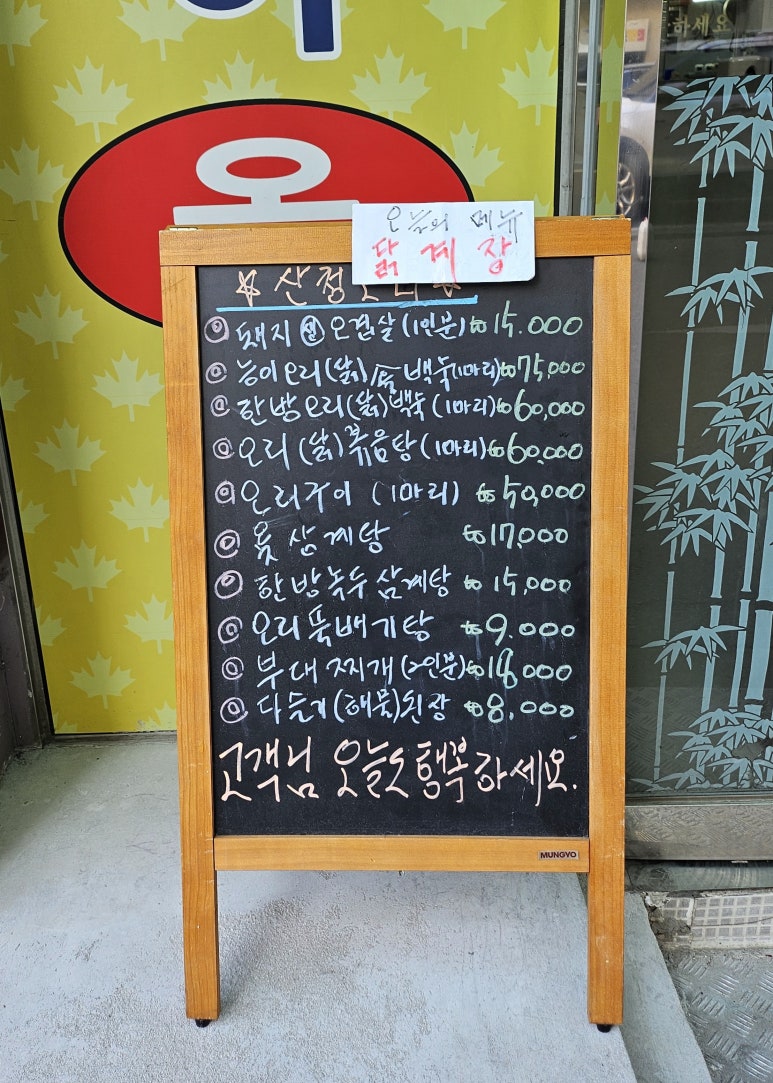 하세요
오늘의 메뉴
닭계장
☆ 산정오리 ☆
◎ 돼지 생 오겹살 (1인분) ₩15.000
◎ 능이오리(닭) 백숙(1마리) ₩75,000
◎ 한방오리(닭)백숙 (1마리) ₩60,000
◎ 오리 (닭)볶음탕 (1마리) ₩60,000
◎ 오리구이 (1마리) ₩50,000
◎ 옻 삼계탕 ₩17,000
◎ 한방녹두 삼계탕 ₩15,000
◎ 오리뚝배기탕 ₩9.000
◎ 부대찌개 (2인분) ₩18,000
◎ 다슬기(해물)된장 ₩8,000
고객님 오늘도 행복하세요.
MUNGYO